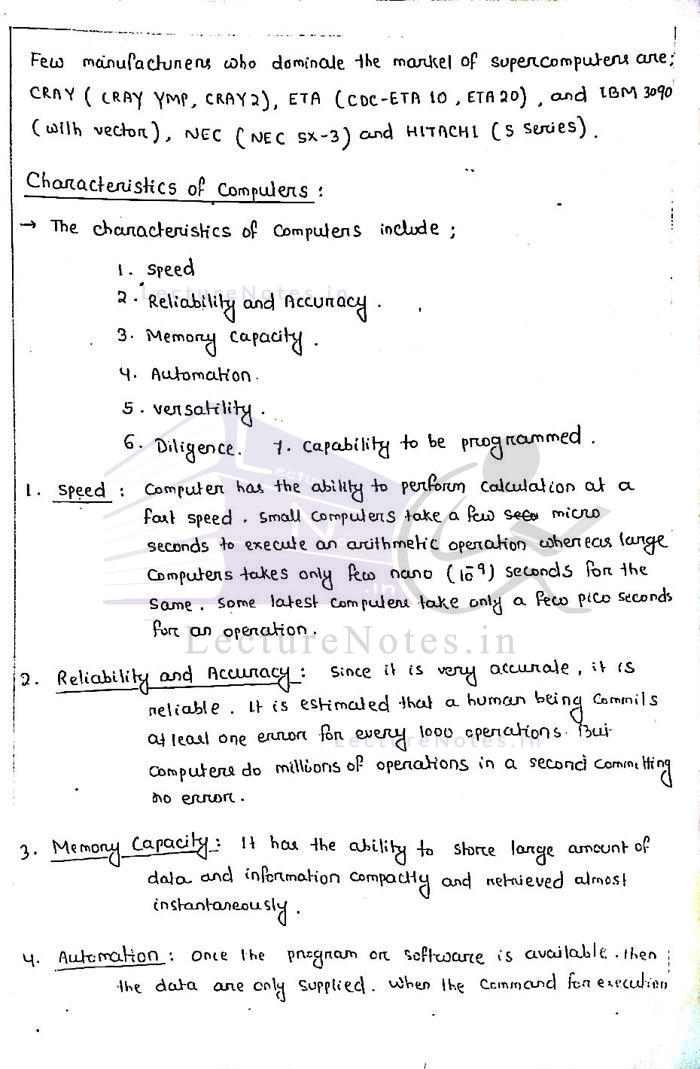 Few manufacturers who dominate the market of supercomputers are;
CRAY ( CRAY YMP, CRAY2), ETA (CDC-ETA 10, ETA20), and IBM 3090
(with vector), NEC (NEC SX-3) and HITACHI (S Series).
Characteristics of Computers :
→ The characteristics of Computers include ;
1. Speed
LectureNotes.in
2. Reliability and Accuracy.
3. Memory Capacity.
4. Automation.
5. Versatility.
6. Diligence. 7. Capability to be programmed.
1. Speed : Computer has the ability to perform calculation at a
fast speed. Small Computers take a few micro
seconds to execute an arithmetic operation whereas large
Computers takes only few nano (10⁻⁹) seconds for the
same. Some latest computers take only a few pico seconds
for an operation.
LectureNotes.in
2. Reliability and Accuracy : Since it is very accurate, it is
reliable. It is estimated that a human being Commits
at least one error for every 1000 operations. But
LectureNotes.in
Computers do millions of operations in a second committing
no error.
3. Memory Capacity : It has the ability to store large amount of
data and information compactly and retrieved almost
instantaneously.
4. Automation : Once the program or software is available. then
the data are only supplied. When the Command for execution